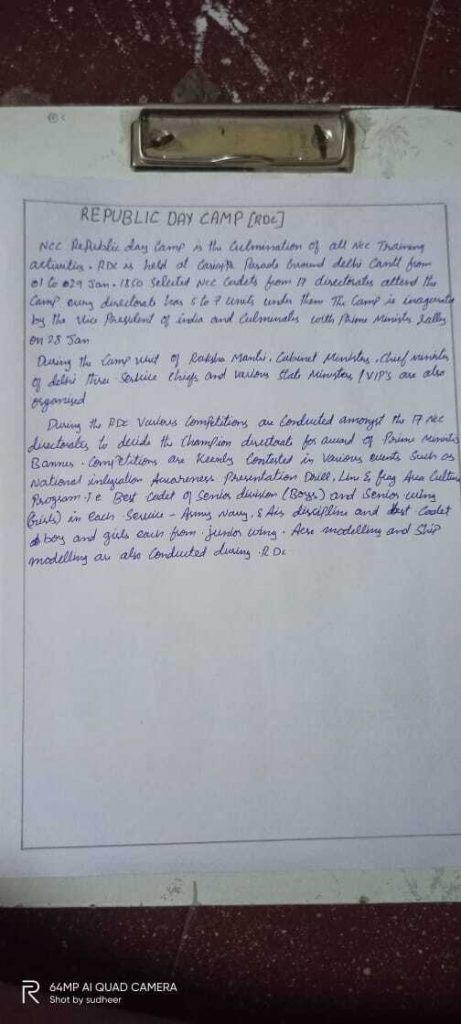 REPUBLIC DAY CAMP [RDC]
NCC Republic day Camp is the Culmination of all Ncc Training
activities. RDC is held at Parade Ground delhi Cantt from
01 to 029 Jan. 1850 Selected Ncc Cadets from 17 directorates attend the
Camp every directorate has 5 to 7 units under them The Camp is
by the Vice President of india and Culminates with Prime Minister rally
on 28 Jan
During the Camp visit of Raksha Mantri, Cabinet Ministers, Chief minister
of delhi three Service Chiefs and various State Ministers / VIP's are also
organised
During the RDC Various Competitions are Conducted amongst the 17 Ncc
directorates to decide the Champion directorate for award of Prime Minister
Banner. Competitions are Keenly Contested in various events Such as
National integration Awareness Presentation Drill, Line & flag Area Culture
Program. i.e Best Cadet of Senior division (Boys) and Senior wing
(Girls) in each Service - Army Navy, & Air discipline and best Cadet
boys and girls each from junior wing. modelling and Ship
modelling are also Conducted during RDC
64MP AI QUAD CAMERA
Shot by sudheer